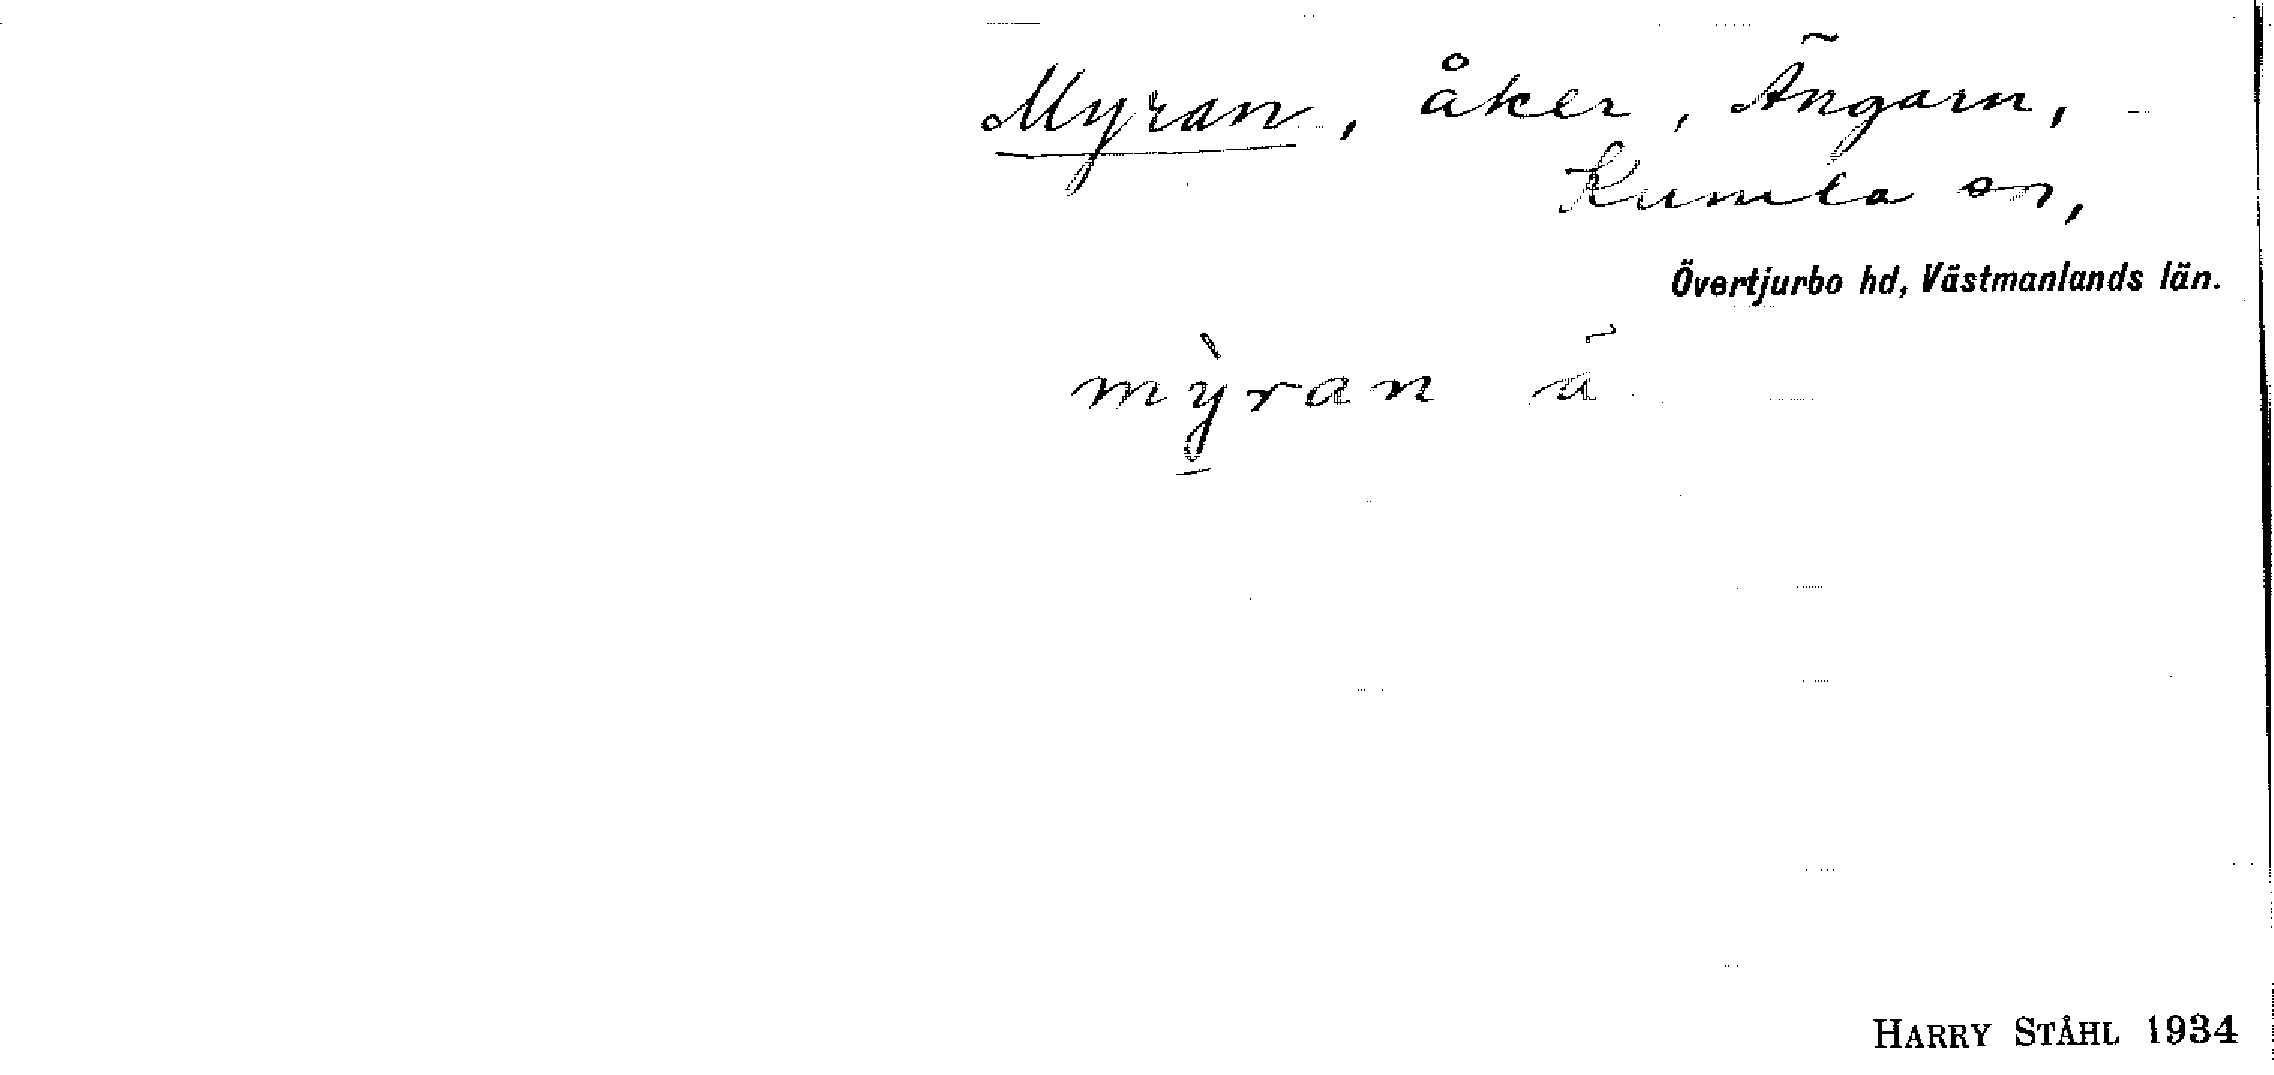 Myran, åker, Ängarn,
Kumla sn,
Övertjurbo hd, Västmanlands län.
mỳran ä
HARRY STÅHL 1934